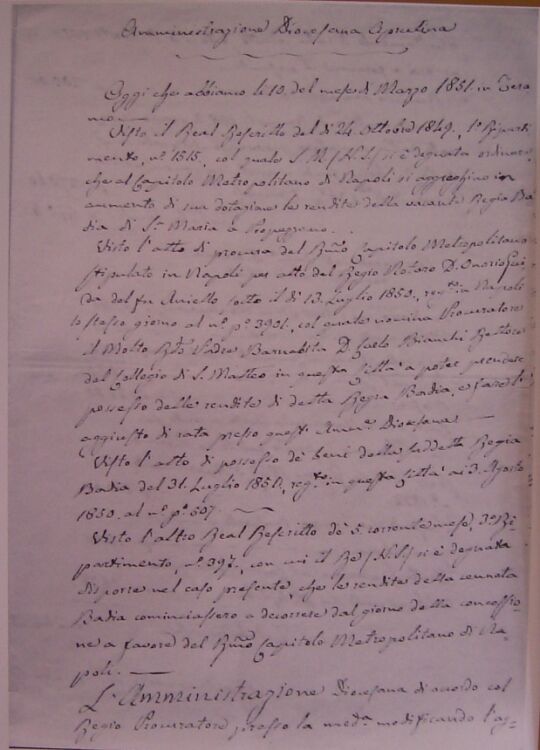 Amministrazione Diocesana Aprutina
Oggi che abbiamo li 10. del mese di Marzo 1851. in Tera
mo —
Visto il Real Rescritto del dì 24. Ottobre 1849, 1° Riparti
mento, n.° 1515, col quale S. M. (N. S.) si è degnata ordinare,
che al Capitolo Metropolitano di Napoli si aggreghino in
aumento di sua dotazione le rendite della vacante Regia Ba
dia di S.ta Maria a Propezzano.
Visto l'atto di procura del R.mo Capitolo Metropolitano
stipulato in Napoli per atto del Regio Notaro D. Onorio
da del fu Aniello sotto il dì 13. Luglio 1850., reg.to in Napoli
lo stesso giorno al n.° p.° 3901, col quale nomina Procuratore
il Molto R.do Padre Barnabita D. Carlo Bianchi Rettore
del Collegio di S. Matteo in questa Città a poter prendere
possesso delle rendite di detta Regia Badia, e fare l'
aggiusto di rata presso questa Amm.ne Diocesana —
Visto l'atto di possesso de' beni della suddetta Regia
Badia del 31. Luglio 1850., reg.to in questa Città ai 3. Agosto
1850. al n.° p.° 607. —
Visto l'altro Real Rescritto de' 5. corrente mese, 3° Ri
partimento, n.° 397., con cui il Re (N. S.) si è degnata
disporre nel caso presente, che le rendite della cennata
Badia cominciassero a decorrere dal giorno della concessio-
ne a favore del R.mo Capitolo Metropolitano di Na-
poli. —
L'Amministrazione Diocesana di accordo col
Regio Procuratore presso la med.a modificando l'ag-